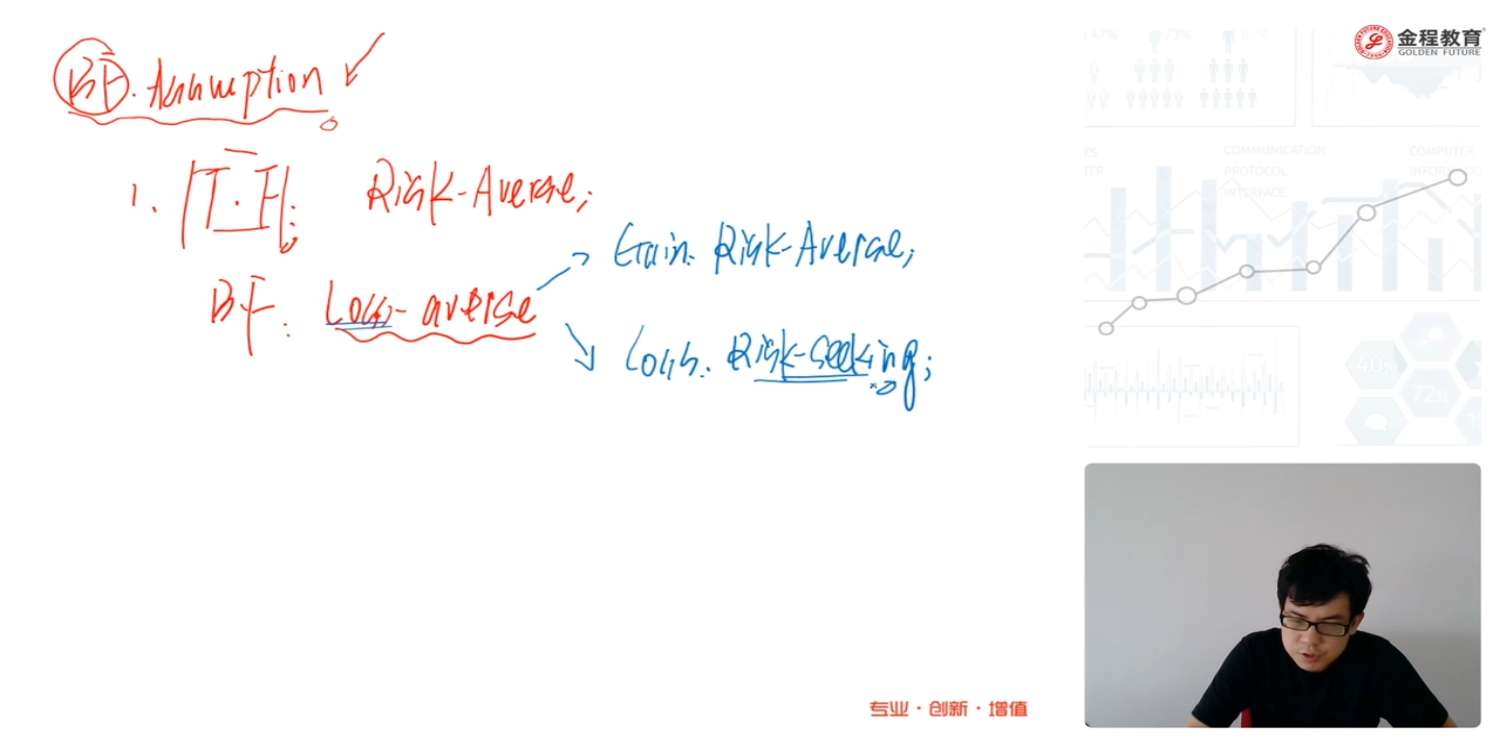 BF. Assumption
1. T.F: Risk-Averse;
Gain. Risk-Averse;
BF: Loss-averse
Loss. Risk-seeking;
金程教育
GOLDEN FUTURE
47%
73%
COMMUNICATION
PROTOCOL
INTERFACE
COMPUTER
40%
专业·创新·增值